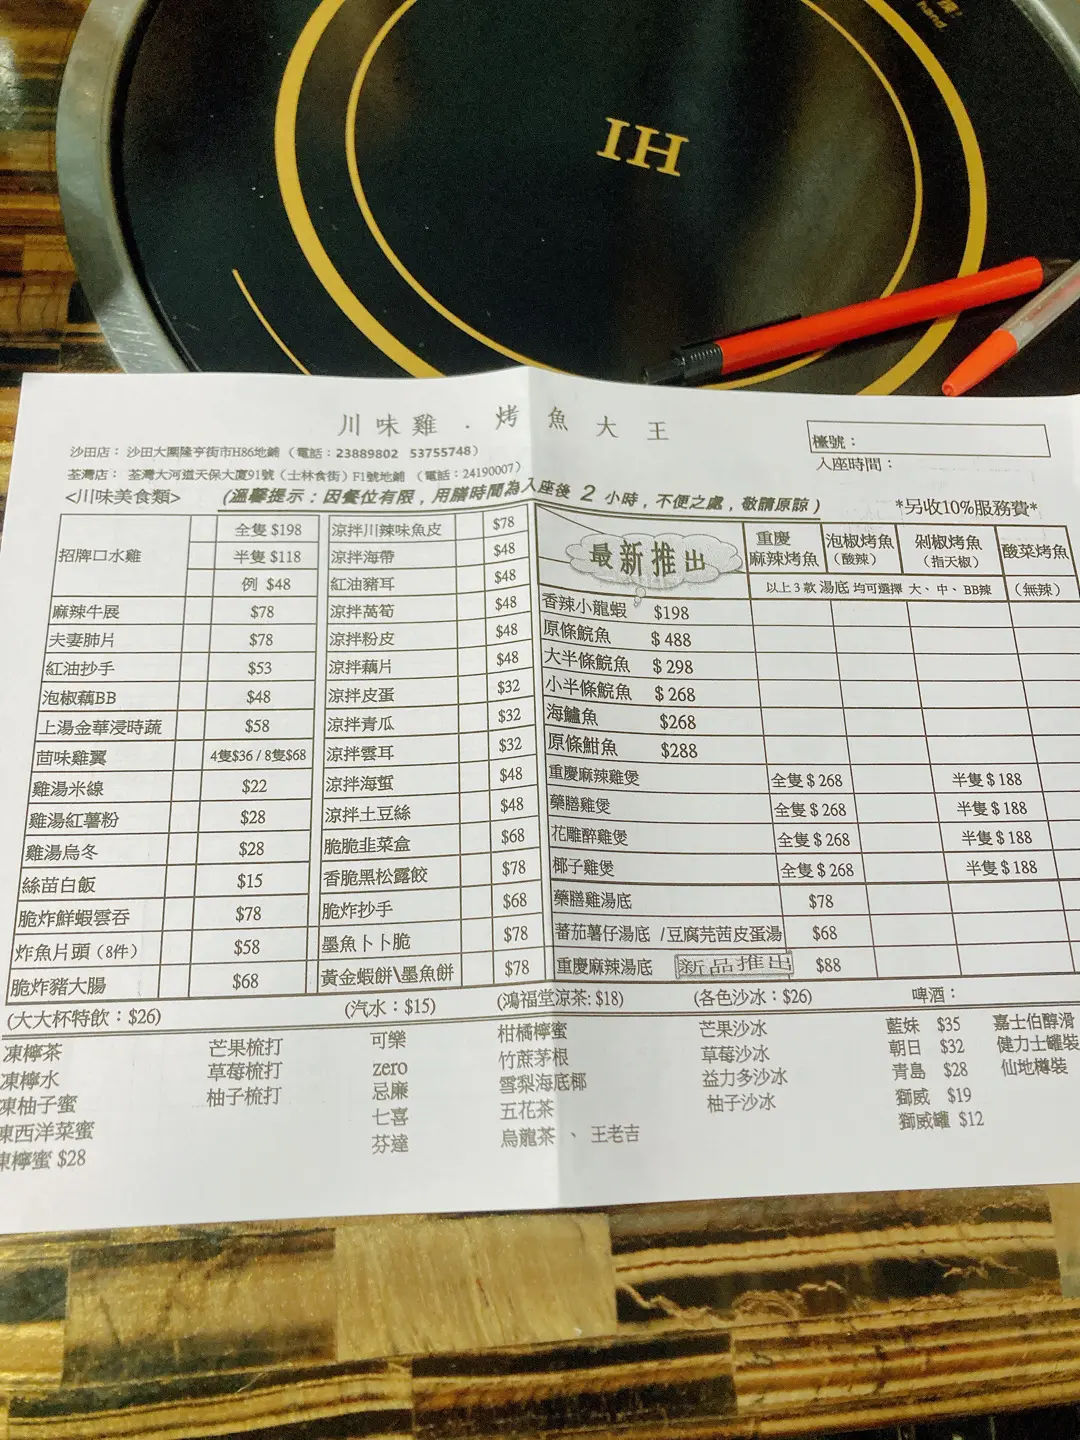 IH
川味雞．烤魚大王
沙田店： 沙田大圍隆亨街市H86地鋪（電話：23889802 53755748）
荃灣店： 荃灣大河道天保大廈91號（士林食街）F1號地鋪 （電話：24190007）
檯號：
入座時間：
<川味美食類>
(溫馨提示：因餐位有限，用膳時間為入座後 2 小時，不便之處，敬請原諒）
*另收10%服務費*
招牌口水雞
全隻 $198
半隻 $118
例 $48
麻辣牛展 $78
夫妻肺片 $78
紅油抄手 $53
泡椒藕BB $48
上湯金華浸時蔬 $58
茴味雞翼 4隻$36 / 8隻$68
雞湯米線 $22
雞湯紅薯粉 $28
雞湯烏冬 $28
絲苗白飯 $15
脆炸鮮蝦雲吞 $78
炸魚片頭（8件） $58
脆炸豬大腸 $68
涼拌川辣味魚皮 $78
涼拌海帶 $48
紅油豬耳 $48
涼拌萵筍 $48
涼拌粉皮 $48
涼拌藕片 $48
涼拌皮蛋 $32
涼拌青瓜 $32
涼拌雲耳 $32
涼拌海蜇 $48
涼拌土豆絲 $48
脆脆韭菜盒 $68
香脆黑松露餃 $78
脆炸抄手 $68
墨魚卜卜脆 $78
黃金蝦餅\墨魚餅 $78
最新推出
重慶麻辣烤魚
泡椒烤魚（酸辣）
剁椒烤魚（指天椒）
酸菜烤魚（無辣）
以上3款湯底均可選擇 大、中、BB辣
香辣小龍蝦 $198
原條鯇魚 $ 488
大半條鯇魚 $ 298
小半條鯇魚 $ 268
海鱸魚 $268
原條鮒魚 $288
重慶麻辣雞煲 全隻 $ 268 半隻 $ 188
藥膳雞煲 全隻 $ 268 半隻 $ 188
花雕醉雞煲 全隻 $ 268 半隻 $ 188
椰子雞煲 全隻 $ 268 半隻 $ 188
藥膳雞湯底 $78
蕃茄薯仔湯底 /豆腐芫茜皮蛋湯 $68
重慶麻辣湯底 新品推出 $88
(大大杯特飲：$26)
凍檸茶
凍檸水
凍柚子蜜
凍西洋菜蜜
凍檸蜜 $28
芒果梳打
草莓梳打
柚子梳打
(汽水：$15)
可樂
zero
忌廉
七喜
芬達
(鴻福堂涼茶: $18)
柑橘檸蜜
竹蔗茅根
雪梨海底椰
五花茶
烏龍茶 、 王老吉
(各色沙冰：$26)
芒果沙冰
草莓沙冰
益力多沙冰
柚子沙冰
啤酒：
藍妹 $35 嘉士伯醇滑
朝日 $32 健力士罐裝
青島 $28 仙地樽裝
獅威 $19
獅威罐 $12